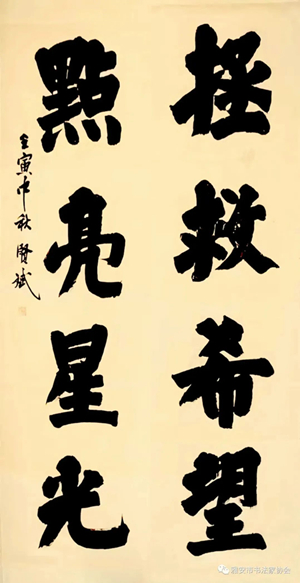 拯救希望
點亮星光
壬寅中秋賢斌
雅安市书法家协会